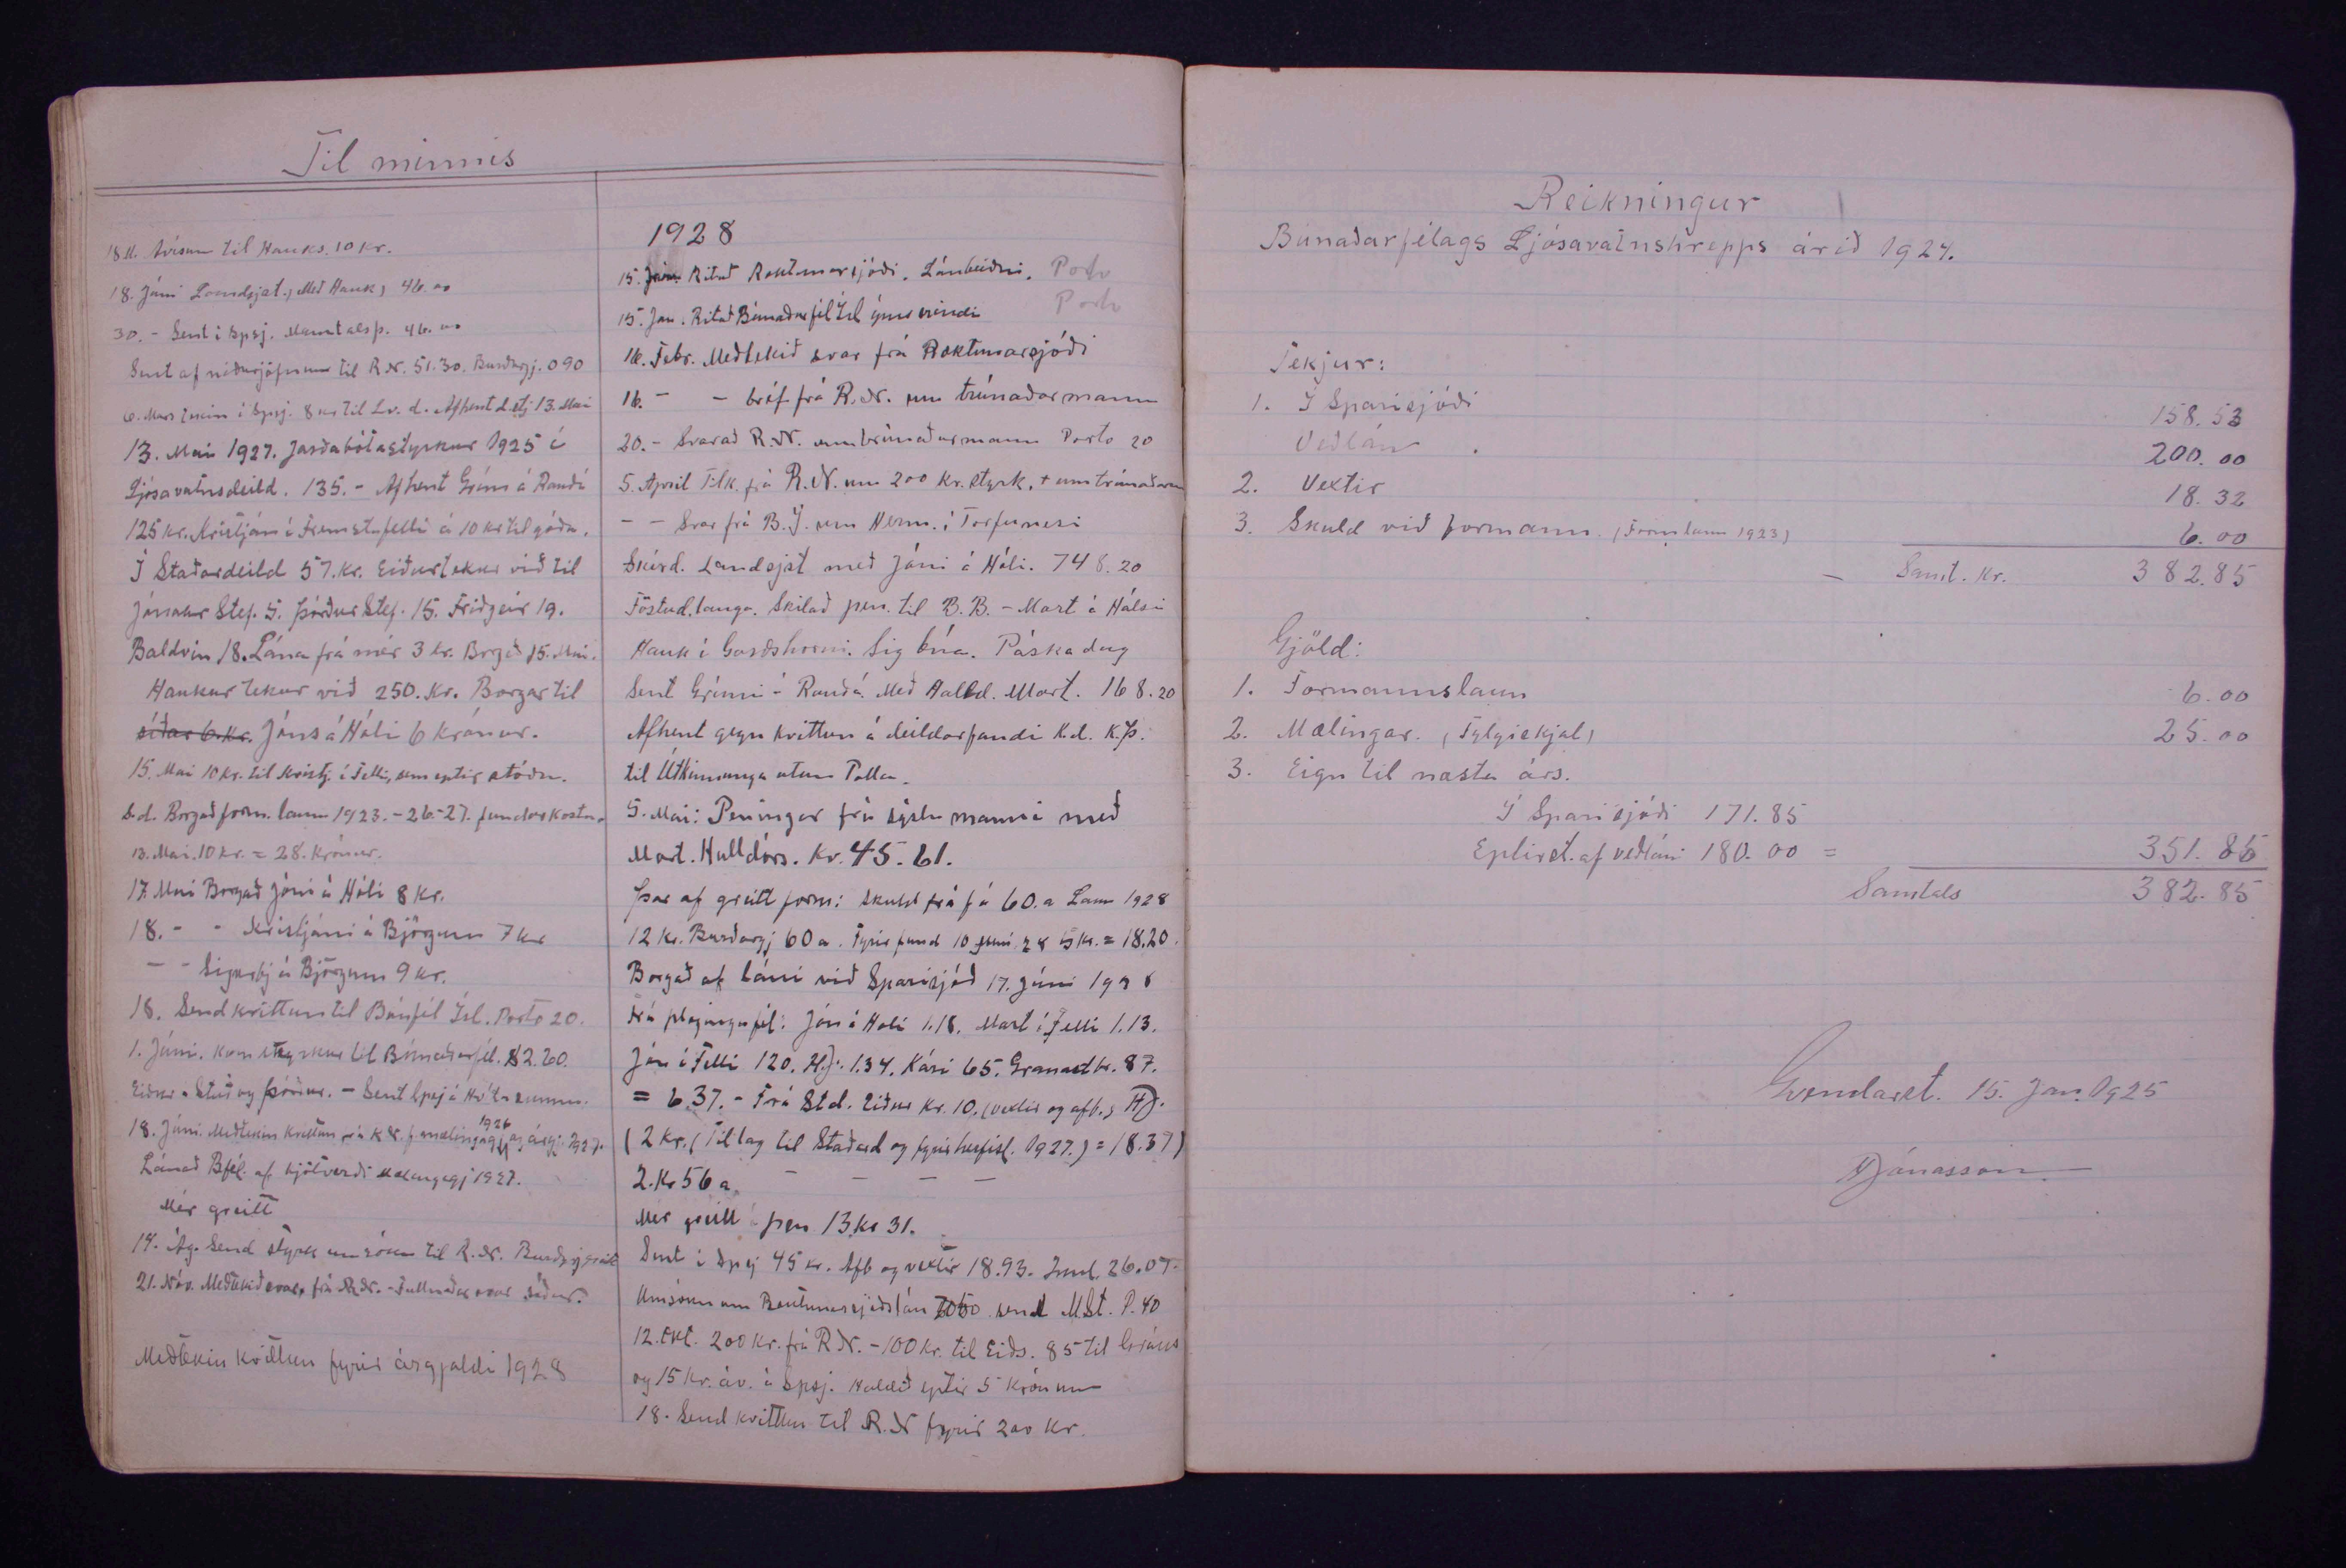 Til minnis
18. Ávísun til Hauks. 10 kr.
18. Júní Landsjst., Með Hauk, 46.00
30. - Sent í spsj. Manntalsþ. 46.00
Sent af niðurjöfnun til R.N. 51.30. Burðargj. 0 90
6. Mars í spsj. 8 kr til Lv. d. Afhent 13. Maí
13. Maí 1927. Jarðabótastyrkur 1925 í
Ljósavatnsdeild. 135.- Afhent Grími á Rauðá
125 kr. Kristján í Fremstafelli á 10 kr til góða.
Í Staðardeild 57. kr. Eiður tekur við til
Jónasar Stef. 5. Þórður Stef. 15. Friðgeir 19.
Baldvin 18. Lána frá mér 3 kr. Borgað 15. Maí.
Haukur tekur við 250. Kr. Borgar til
síðar 6. kr. Jóns á Hóli 6 krónur.
15. Maí 10 kr. til Kristj. í Felli, sem eptir stóðu.
s.d. Borgað form. laun 1923.-26-27. fundarkostn.
13. Maí. 10 kr. = 28. Krónur.
17. Maí Borgað Jóni á Hóli 8 kr.
18. - - Kristjáni á Björgum 7 kr
- - Sigurbj á Björgum 9 kr.
18. Send kvittun til Búnfél Ísl. Porto 20.
1. Júní. Kom styrkur til Búnaðarfél. 82.60.
Eiður - Stað og Þóroddur. - Sent spsj á
18. Júní. Meðtekin kvittun frá R.N. f. mælingagj 1926 og árgj. 1927.
Lánað Bfél. af kjötverði 1927.
Mér greitt
14. Ág. Send styrk umsókn til R.N. Burðargj greitt
21. Nóv. Meðtekið svar frá R.N. - Fullnaðar svar síðar.
Meðtekin kvittun fyrir árgjaldi 1928
1928
15. Jan. Ritað Ræktunarsjóði. Lánbeiðni. Porto
15. Jan. Ritað Búnaðarfél Ísl ýms erindi Porto
16. Febr. Meðtekið svar frá Ræktunarsjóði
16. - - bréf frá R.N. um trúnaðarmann
20. - Svarað R.N. um trúnaðarmann Porto 20
5. Apríl Tilk. frá R.N. um 200 kr. styrk, + um trúnaðarm
- - Svar frá B.Í. um Herm. í Torfunesi
Skírd. Landsjst með Jóni á Hóli. 748.20
Föstud. langa. Skilað pen. til B.B. - Mart á Hálsi
Hauk í Garðshorni. Sig búa. Páskadag
Sent Grími á Rauðá. Með Halld. Mart. 168.20
Afhent gegn kvittun á deildarfundi K.d. K.Þ.
til Útkinnunga utan Polla.
5. Maí: Peningar frá sýslumanni með
Mart. Halldórs. Kr. 45.61.
Þar af greitt form: skuld frá f á 60. a Laun 1928
12 kr. Burðargj 60 a. Fyrir fund 10 Júní 28 5 kr. = 18.20.
Borgað af láni við Sparisjóð 17. Júní 1928
Frá plægingafél: Jón á Hóli 1.18. Mart í Felli 1.13.
Jón í Felli 120. H.J. 1.34. Kári 65. Granastb. 87.
= 6.37. - Frá Std. Eiður Kr. 10. (vextir og afb.) HJ.
(2 kr. (Tillag til Staðard og fyrir 1927.) = 18.37)
2. Kr 56 a. - - - -
Mér greitt pen 13. kr 31.
Sent í spsj 45 kr. Afb og vextir 18.93. Innl. 26.07.
Umsókn um Ræktunarsjóðslán send M.St. P. 40
12. Okt. 200 kr. frá R.N. - 100 kr. til Eiðs. 85 til Gríms
og 15 kr. áv. á spsj. Haldið eptir 5 krónum
18. Send kvittun til R.N fyrir 200 kr.
Reikningur
Búnaðarfélags Ljósavatnshrepps árið 1924.
Tekjur:
1. Í Sparisjóði 158.53
Veðlán 200.00
2. Vextir 18.32
3. Skuld við formann. (Form laun 1923) 6.00
Samt. kr. 382.85
Gjöld:
1. Formannslaun 6.00
2. Mælingar. (Fylgiskjal) 25.00
3. Eign til næsta árs.
Í Sparisjóði 171.85
Eptirst. af veðláni 180.00 = 351.85
Samtals 382.85
Landamst. 15. Jan. 1925
HJónasson